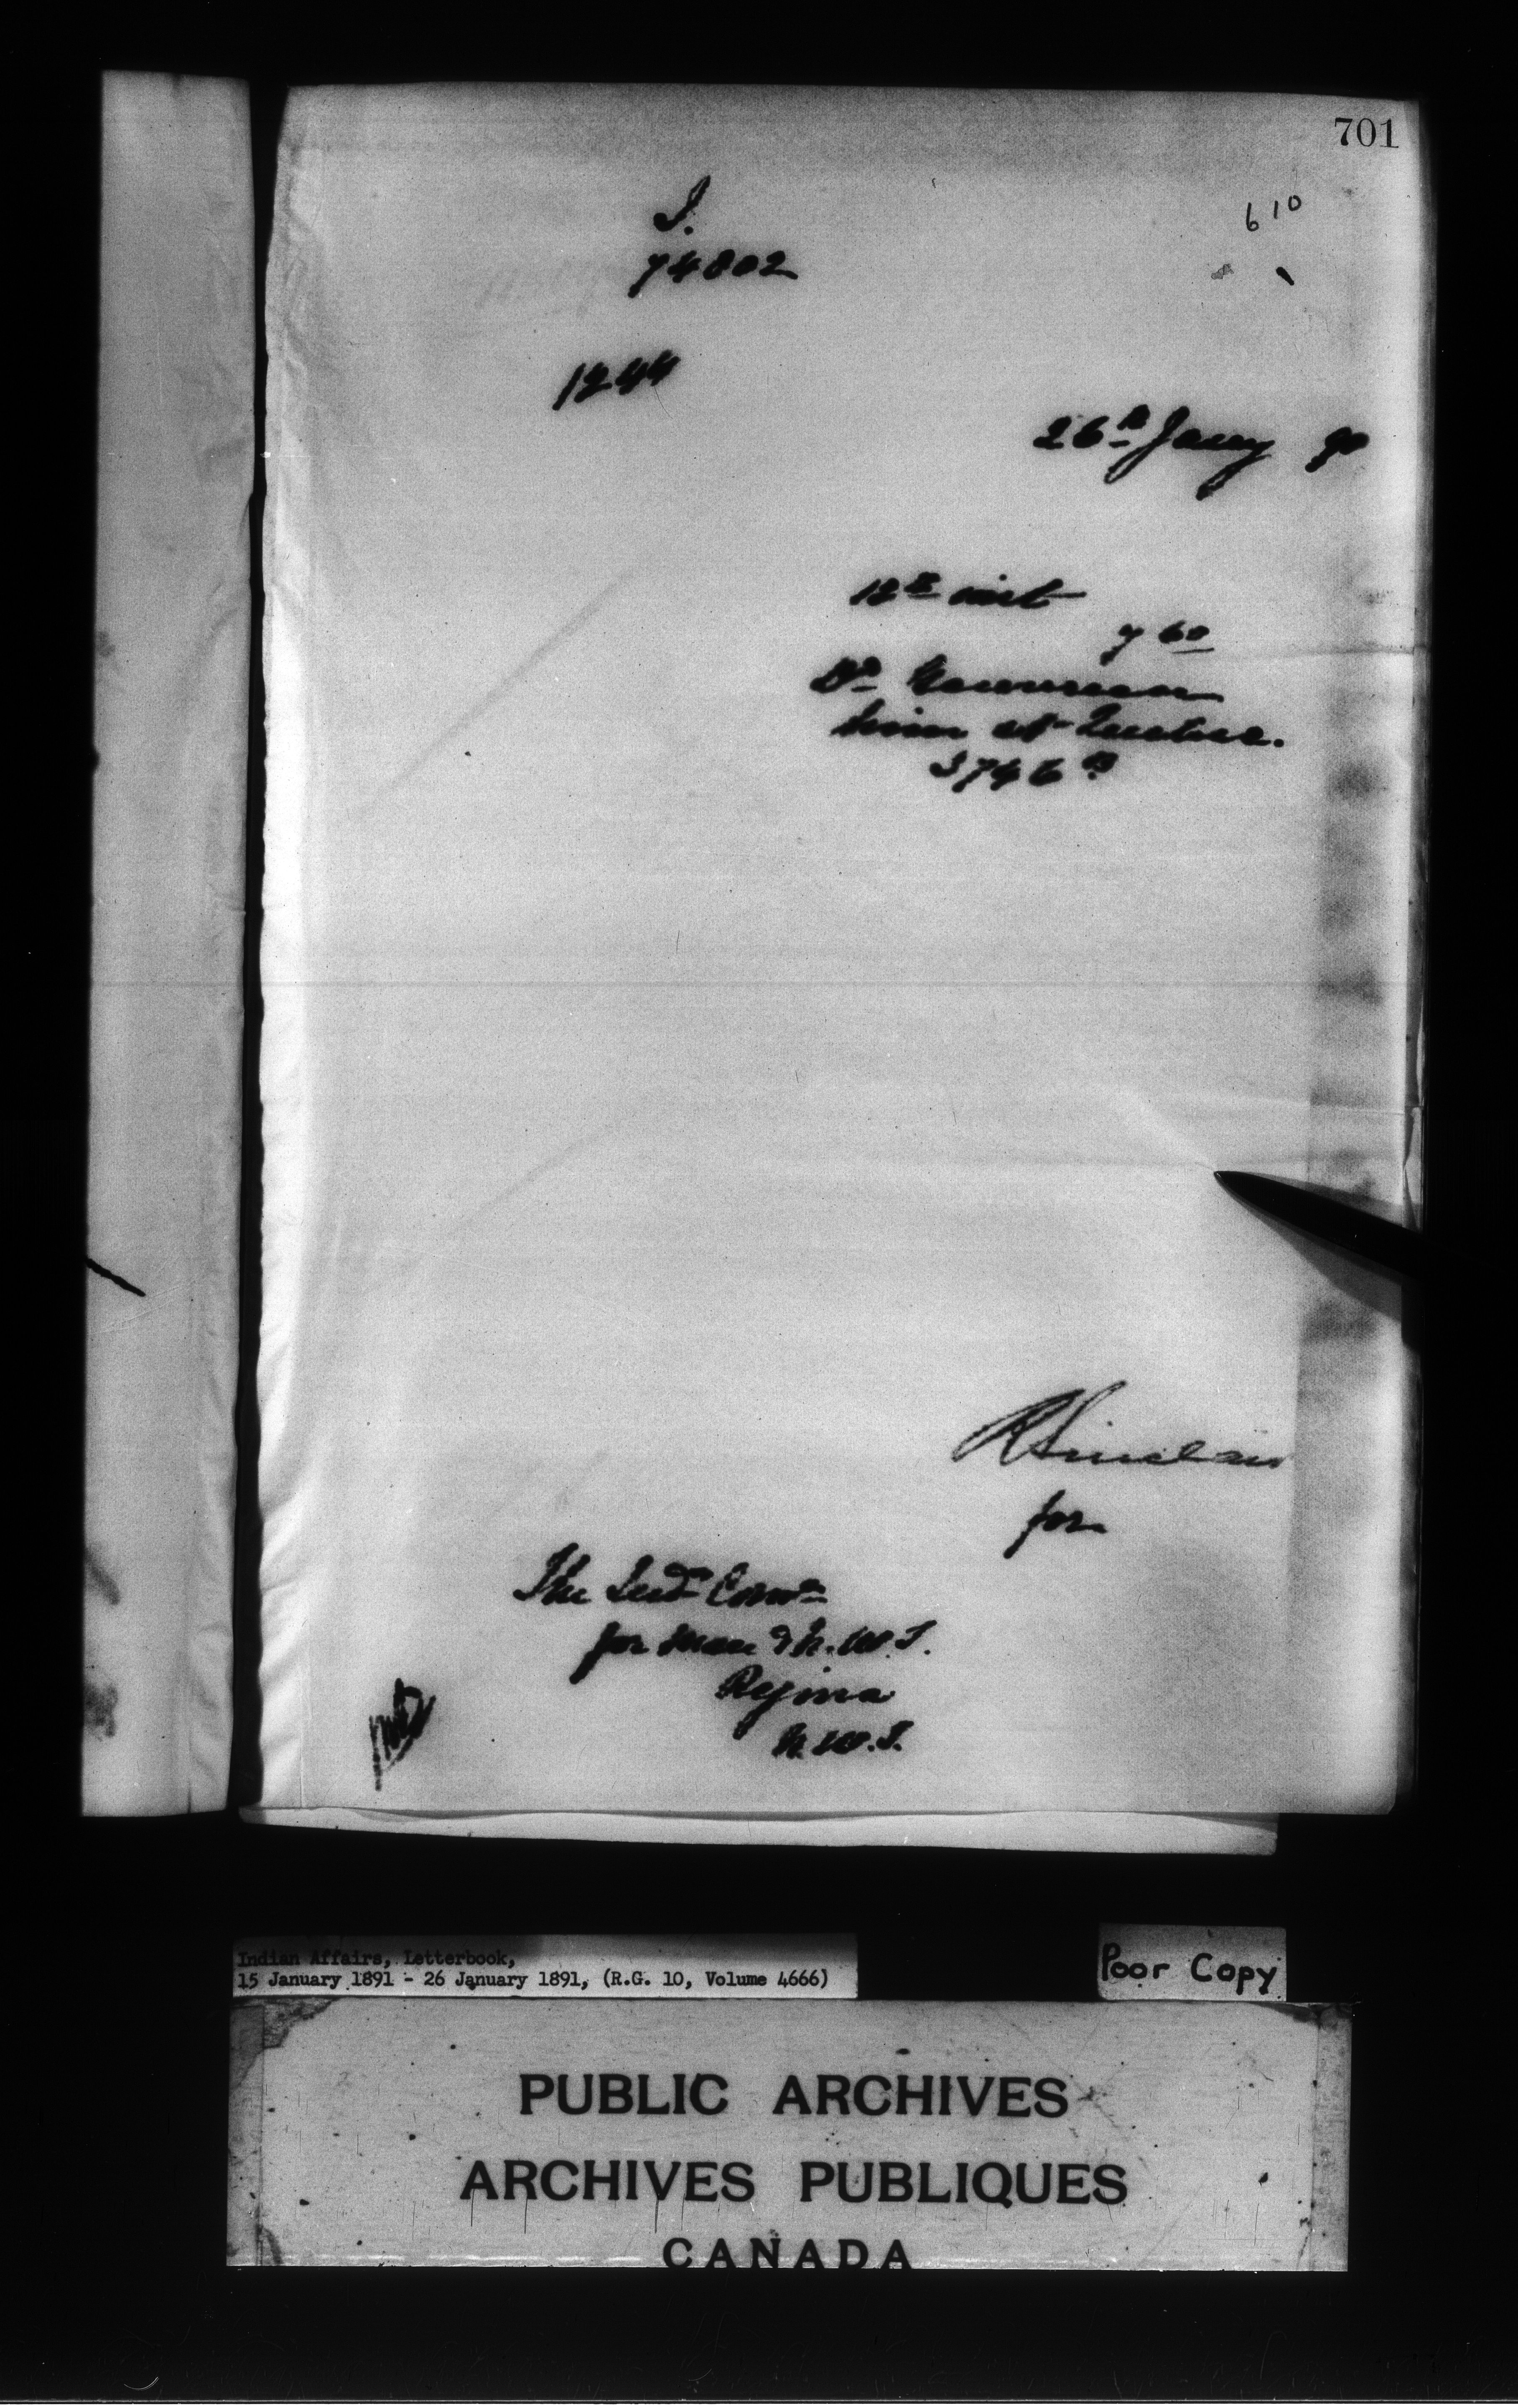 701
610
I.
74802
1244
26th Jany 90
12th inst
760
Dr
him at Quebec.
3746 B
RSinclair
for
The Indn Comr
for Man & N.W.T.
Regina
N.W.T.
Indian Affairs, Letterbook,
15 January 1891 - 26 January 1891, (R.G. 10, Volume 4666)
Poor Copy
PUBLIC ARCHIVES
ARCHIVES PUBLIQUES
CANADA